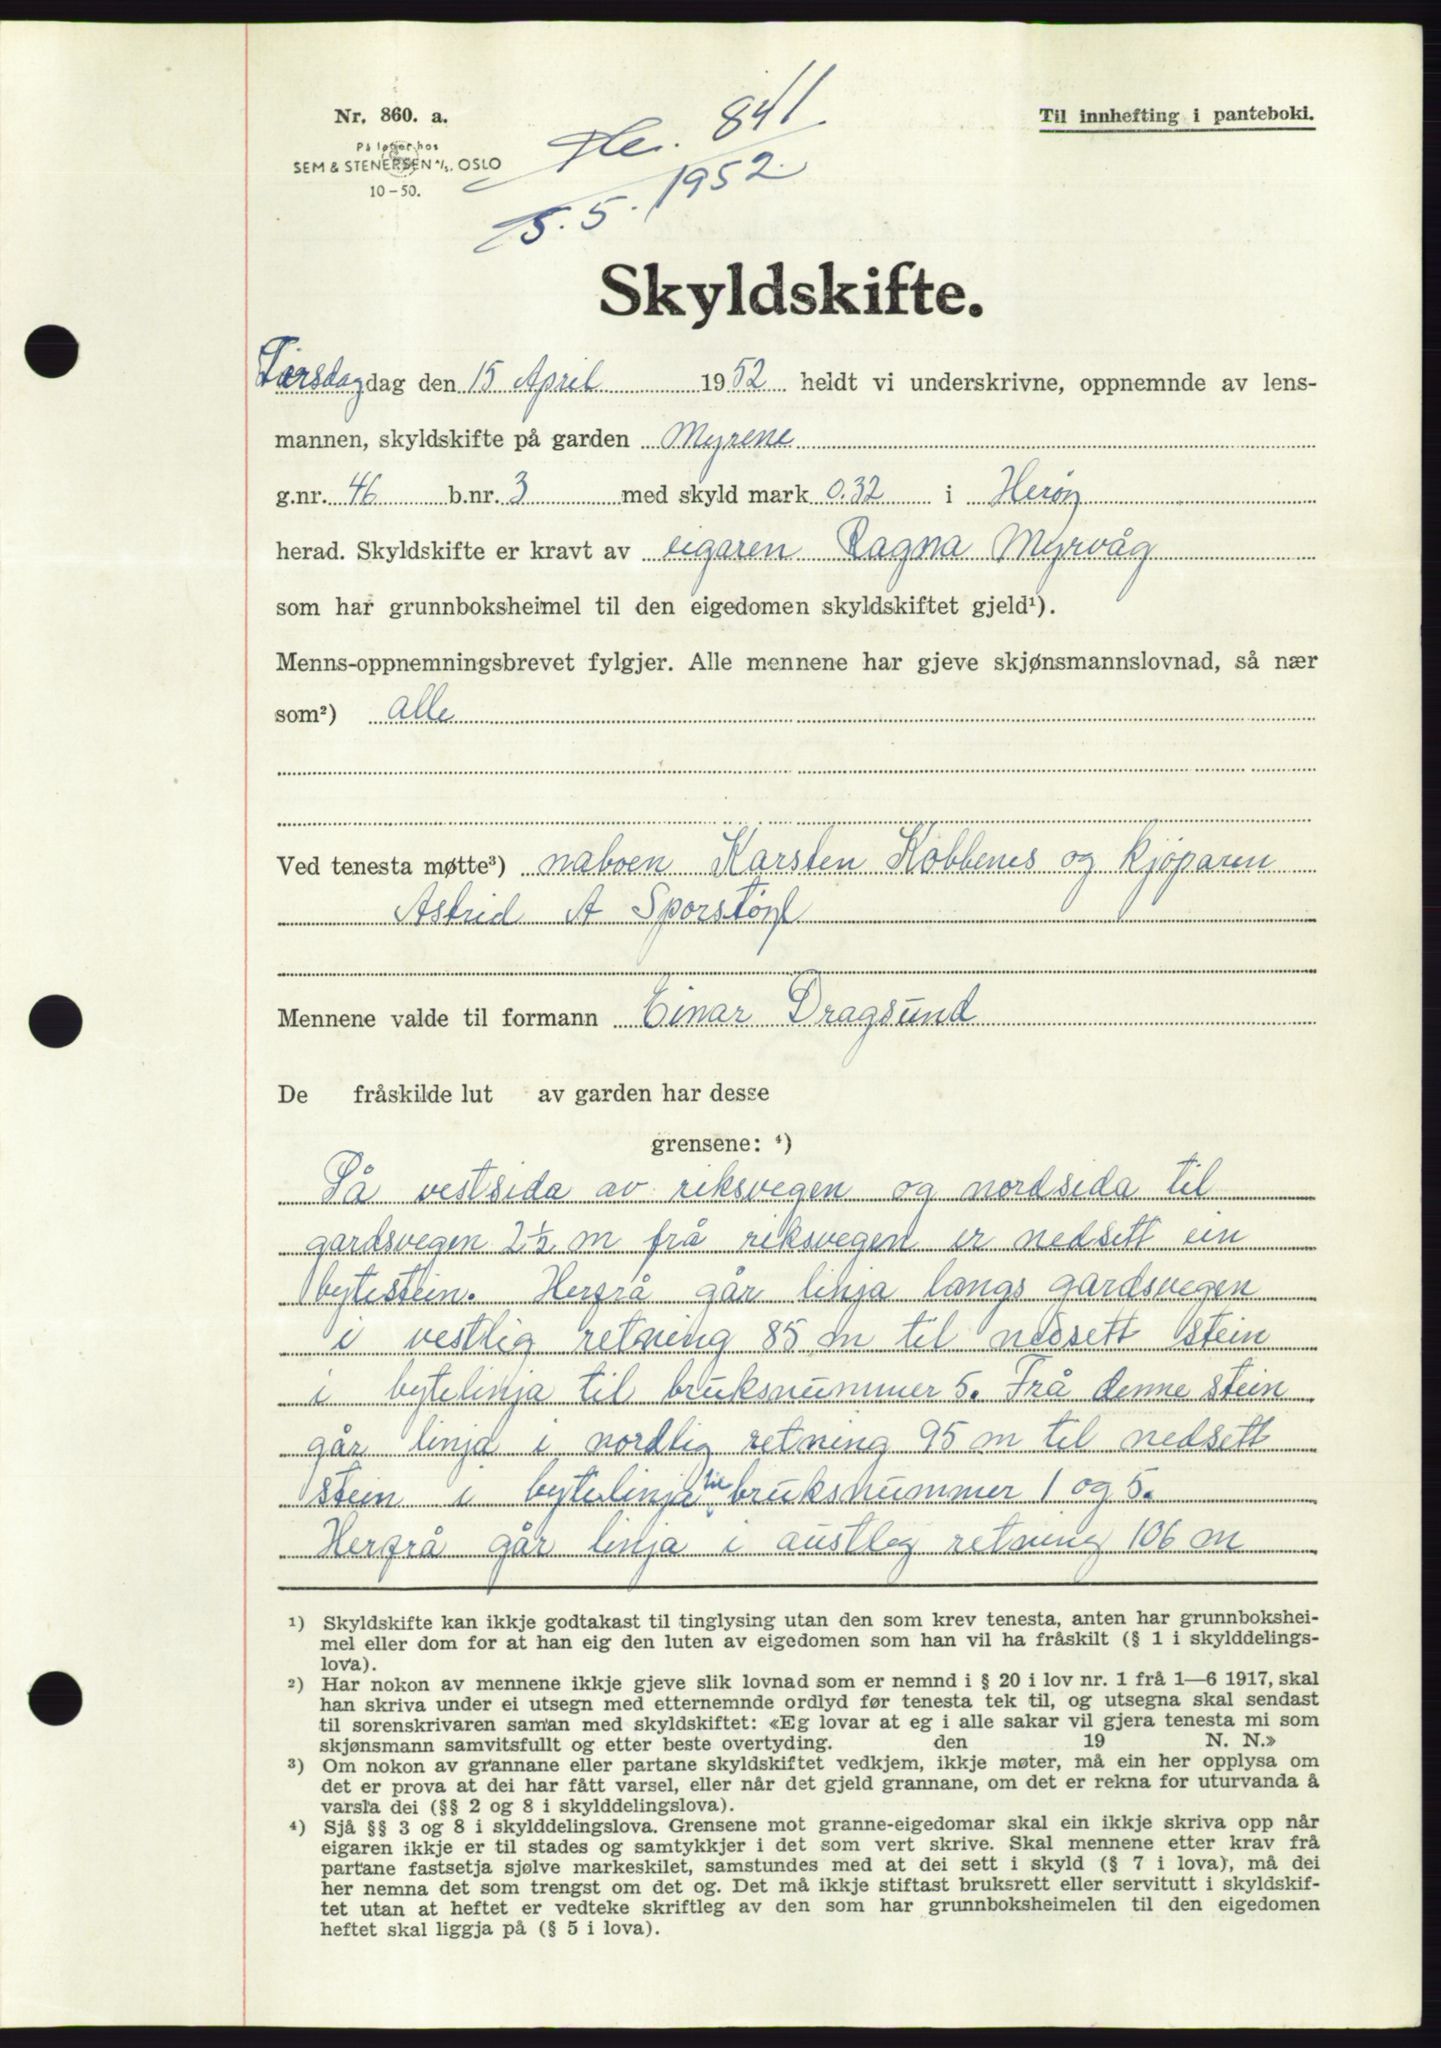 Nr. 860. a.
På lager hos
SEM & STENERSEN A/S. OSLO
10-50.
841
1952.
5.5.
Til innhefting i panteboki.
Skyldskifte.
Tirsdag dag den 15 April 1952 heldt vi underskrivne, oppnemnde av lens-
mannen, skyldskifte på garden Myrene
g.nr. 46 b.nr. 3 med skyld mark 0.32 i Herøy
herad. Skyldskifte er kravt av eigaren Ragna Myrvåg
som har grunnboksheimel til den eigedomen skyldskiftet gjeld¹).
Menns-oppnemningsbrevet fylgjer. Alle mennene har gjeve skjønsmannslovnad, så nær
som²) alle
Ved tenesta møtte³) naboen Karsten Kobbenes og kjöparen
Astrid A Sporstöyl
Mennene valde til formann Einar Dragsund
De fråskilde lut av garden har desse
grensene: ⁴)
På vestsida av riksvegen og nordsida til
gardsvegen 2½ m frå riksvegen er nedsett ein
bytestein. Herfrå går linja langs gardsvegen
i vestlig retning 85 m til nedsett stein
i bytelinja til bruksnummer 5. Frå denne stein
går linja i nordlig retning 95 m til nedsett
stein i bytelinja til bruksnummer 1 og 5.
Herfrå går linja i austleg retning 106 m
¹) Skyldskifte kan ikkje godtakast til tinglysing utan den som krev tenesta, anten har grunnbokshei-
mel eller dom for at han eig den luten av eigedomen som han vil ha fråskilt (§ 1 i skylddelings-
lova).
²) Har nokon av mennene ikkje gjeve slik lovnad som er nemnd i § 20 i lov nr. 1 frå 1—6 1917, skal
han skriva under ei utsegn med etternemnde ordlyd før tenesta tek til, og utsegna skal sendast
til sorenskrivaren saman med skyldskiftet: «Eg lovar at eg i alle sakar vil gjera tenesta mi som
skjønsmann samvitsfullt og etter beste overtyding. den 19 N. N.»
³) Om nokon av grannane eller partane skyldskiftet vedkjem, ikkje møter, må ein her opplysa om
det er prova at dei har fått varsel, eller når det gjeld grannane, om det er rekna for uturvanda å
varsla dei (§§ 2 og 8 i skylddelingslova).
⁴) Sjå §§ 3 og 8 i skylddelingslova. Grensene mot granne-eigedomar skal ein ikkje skriva opp når
eigaren ikkje er til stades og samtykkjer i det som vert skrive. Skal mennene etter krav frå
partane fastsetja sjølve markeskilet, samstundes med at dei sett i skyld (§ 7 i lova), må dei
her nemna det som trengst om det og. Det må ikkje stiftast bruksrett eller servitutt i skyldskif-
tet utan at heftet er vedteke skriftleg av den som har grunnboksheimelen til den eigedomen
heftet skal liggja på (§ 5 i lova).